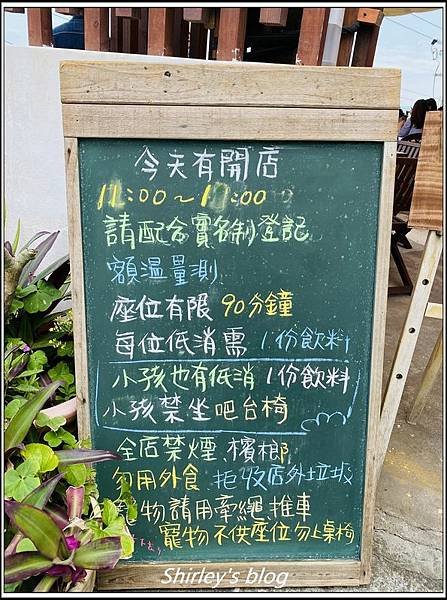 今天有開店
11:00～17:00
請配合實名制登記
額溫量測
座位有限 90分鐘
每位低消需 1份飲料
小孩也有低消 1份飲料
小孩禁坐吧台椅
全店禁煙、檳榔
勿用外食 拒收店外垃圾
寵物請用牽繩、推車
寵物不供座位勿上桌椅
Shirley's blog